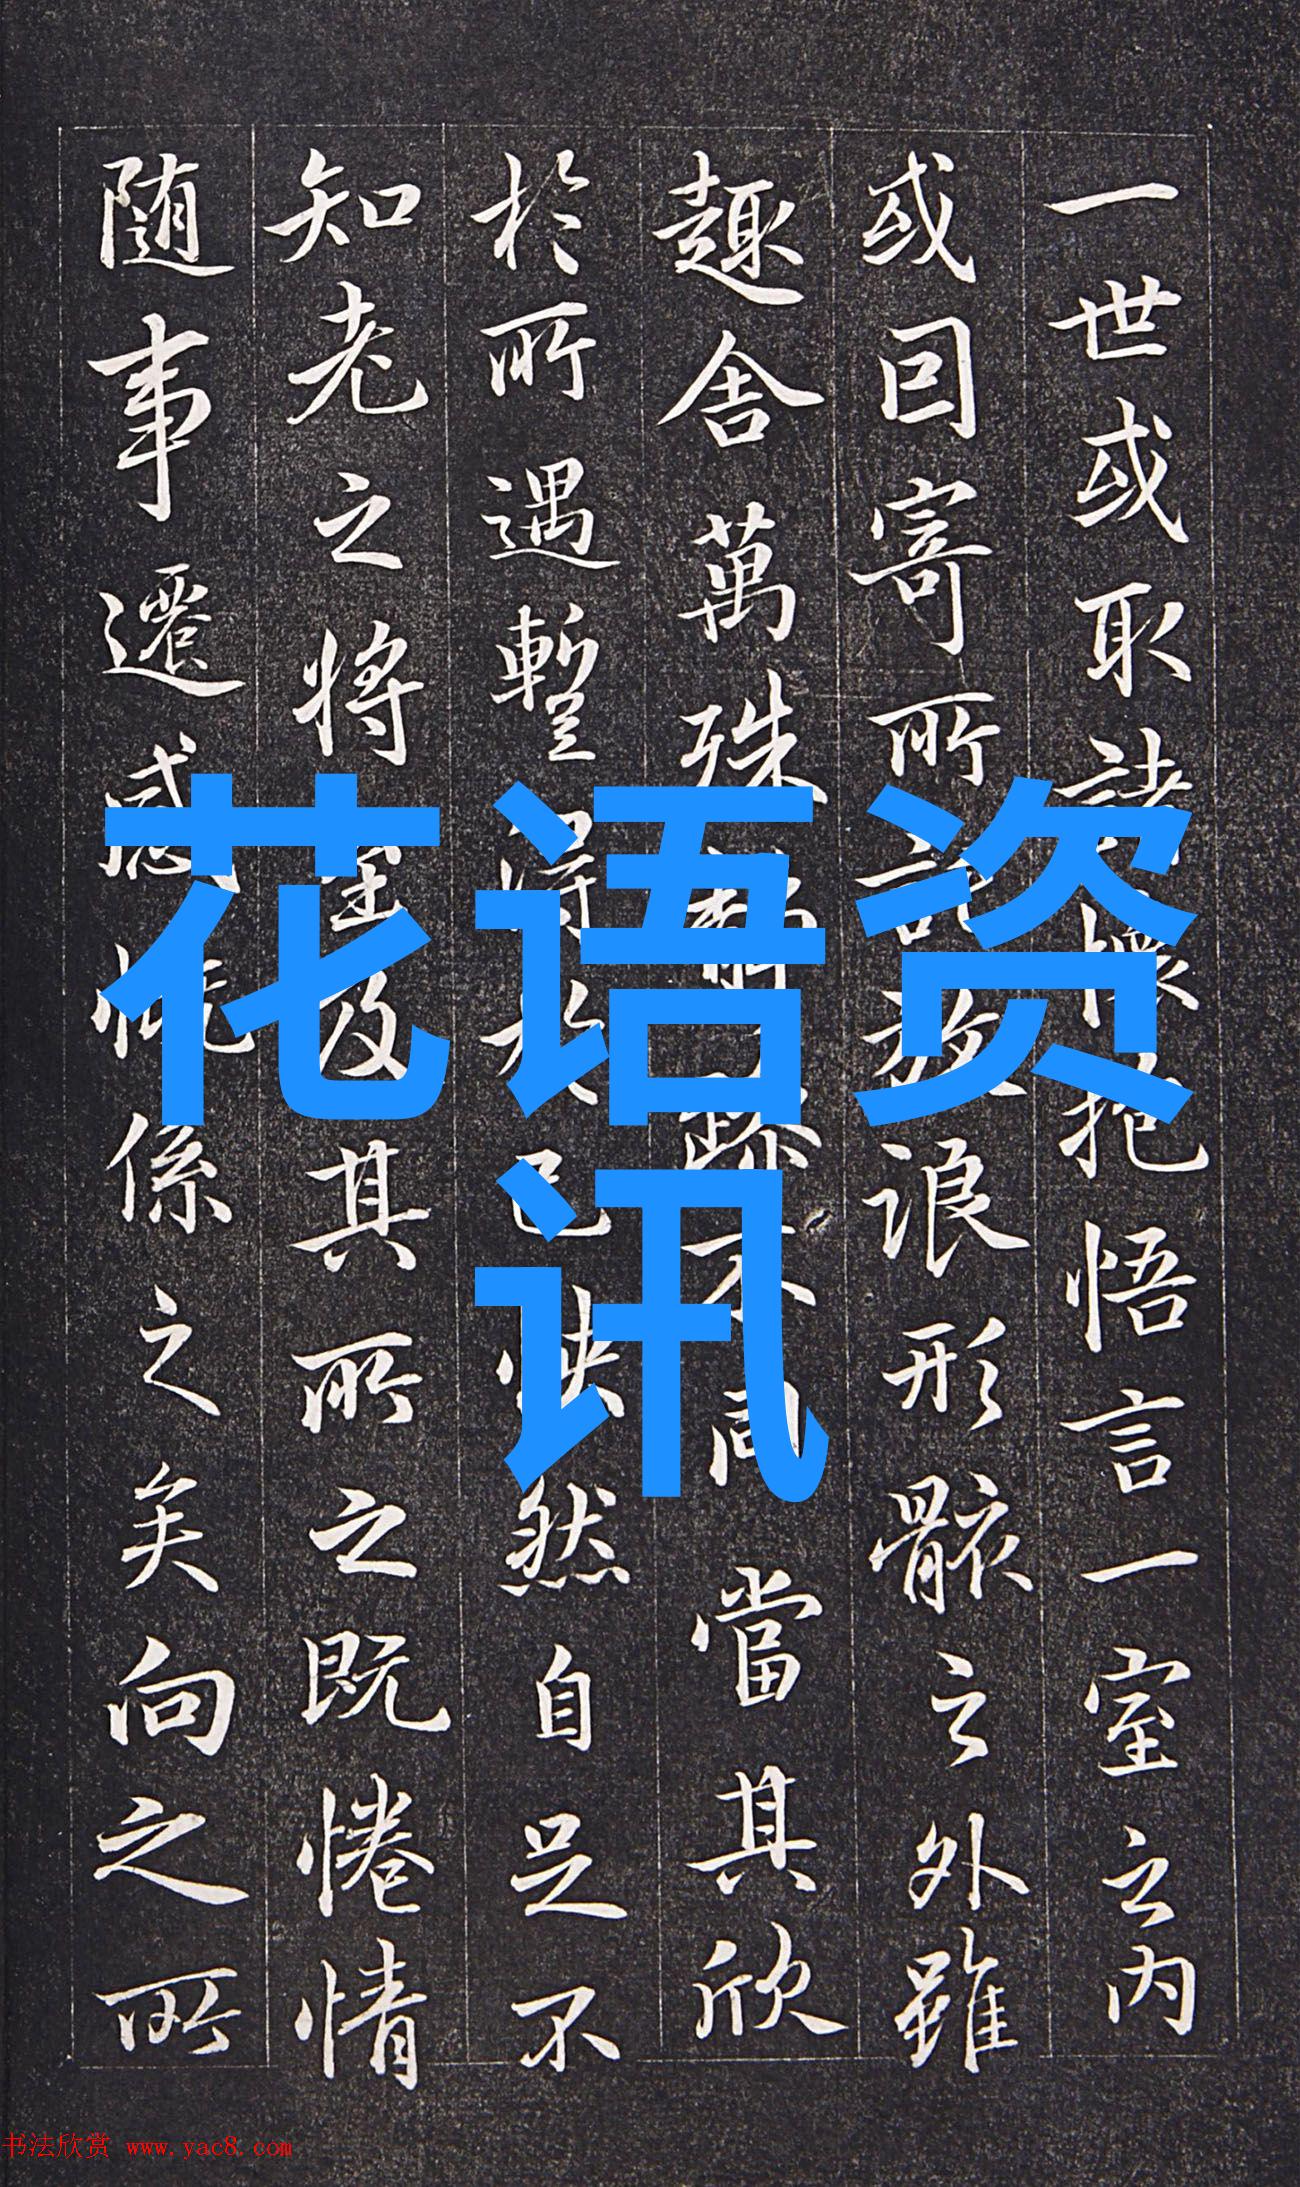 一世或取諸懷抱悟言一室之内
或囙寄所託放浪形骸之外雖
趣舍萬殊靜躁不同當其欣
於所遇暫得於己怏然自足不
知老之將至及其所之既惓情
随事遷感慨係之矣向之所
花语资
讯
书法欣赏 www.yac8.com